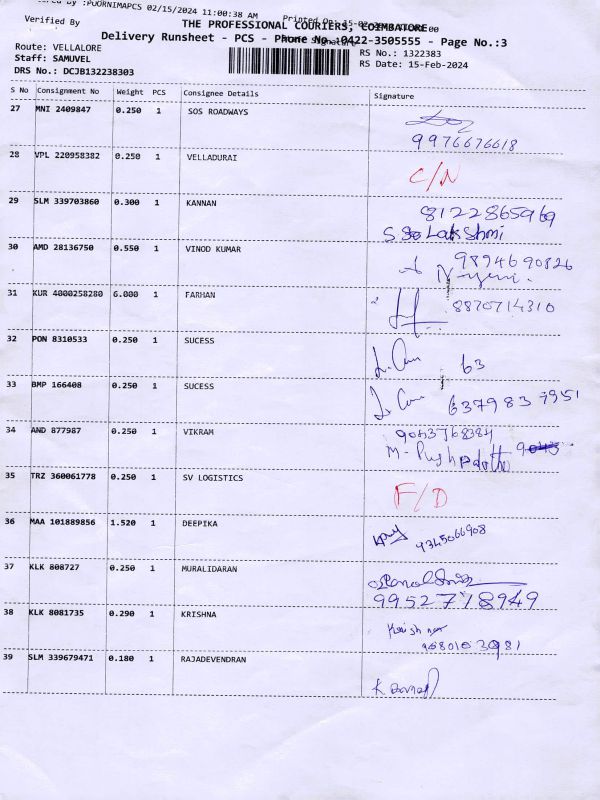 :POORNIMAPCS 02/15/2024 11:00:38 AM
Verified By
THE PROFESSIONAL COURIERS, COIMBATORE
Delivery Runsheet - PCS - Phone No.:0422-3505555 - Page No.:3
Route: VELLALORE
RS No.: 1322383
Staff: SAMUVEL
RS Date: 15-Feb-2024
DRS No.: DCJB132238303
S No Consignment No Weight PCS Consignee Details Signature
27 MNI 2409847 0.250 1 SOS ROADWAYS
9976676618
28 VPL 220958382 0.250 1 VELLADURAI C/N
29 SLM 339703860 0.300 1 KANNAN 8122865969
Lakshmi
30 AMD 28136750 0.550 1 VINOD KUMAR 9894690826
31 KUR 4000258280 6.000 1 FARHAN 8870714310
32 PON 8310533 0.250 1 SUCESS 63
33 BMP 166408 0.250 1 SUCESS 6379837951
34 AND 877987 0.250 1 VIKRAM
35 TRZ 360061778 0.250 1 SV LOGISTICS F/D
36 MAA 101889856 1.520 1 DEEPIKA 9345066908
37 KLK 808727 0.250 1 MURALIDARAN
9952778949
38 KLK 8081735 0.290 1 KRISHNA
39 SLM 339679471 0.180 1 RAJADEVENDRAN